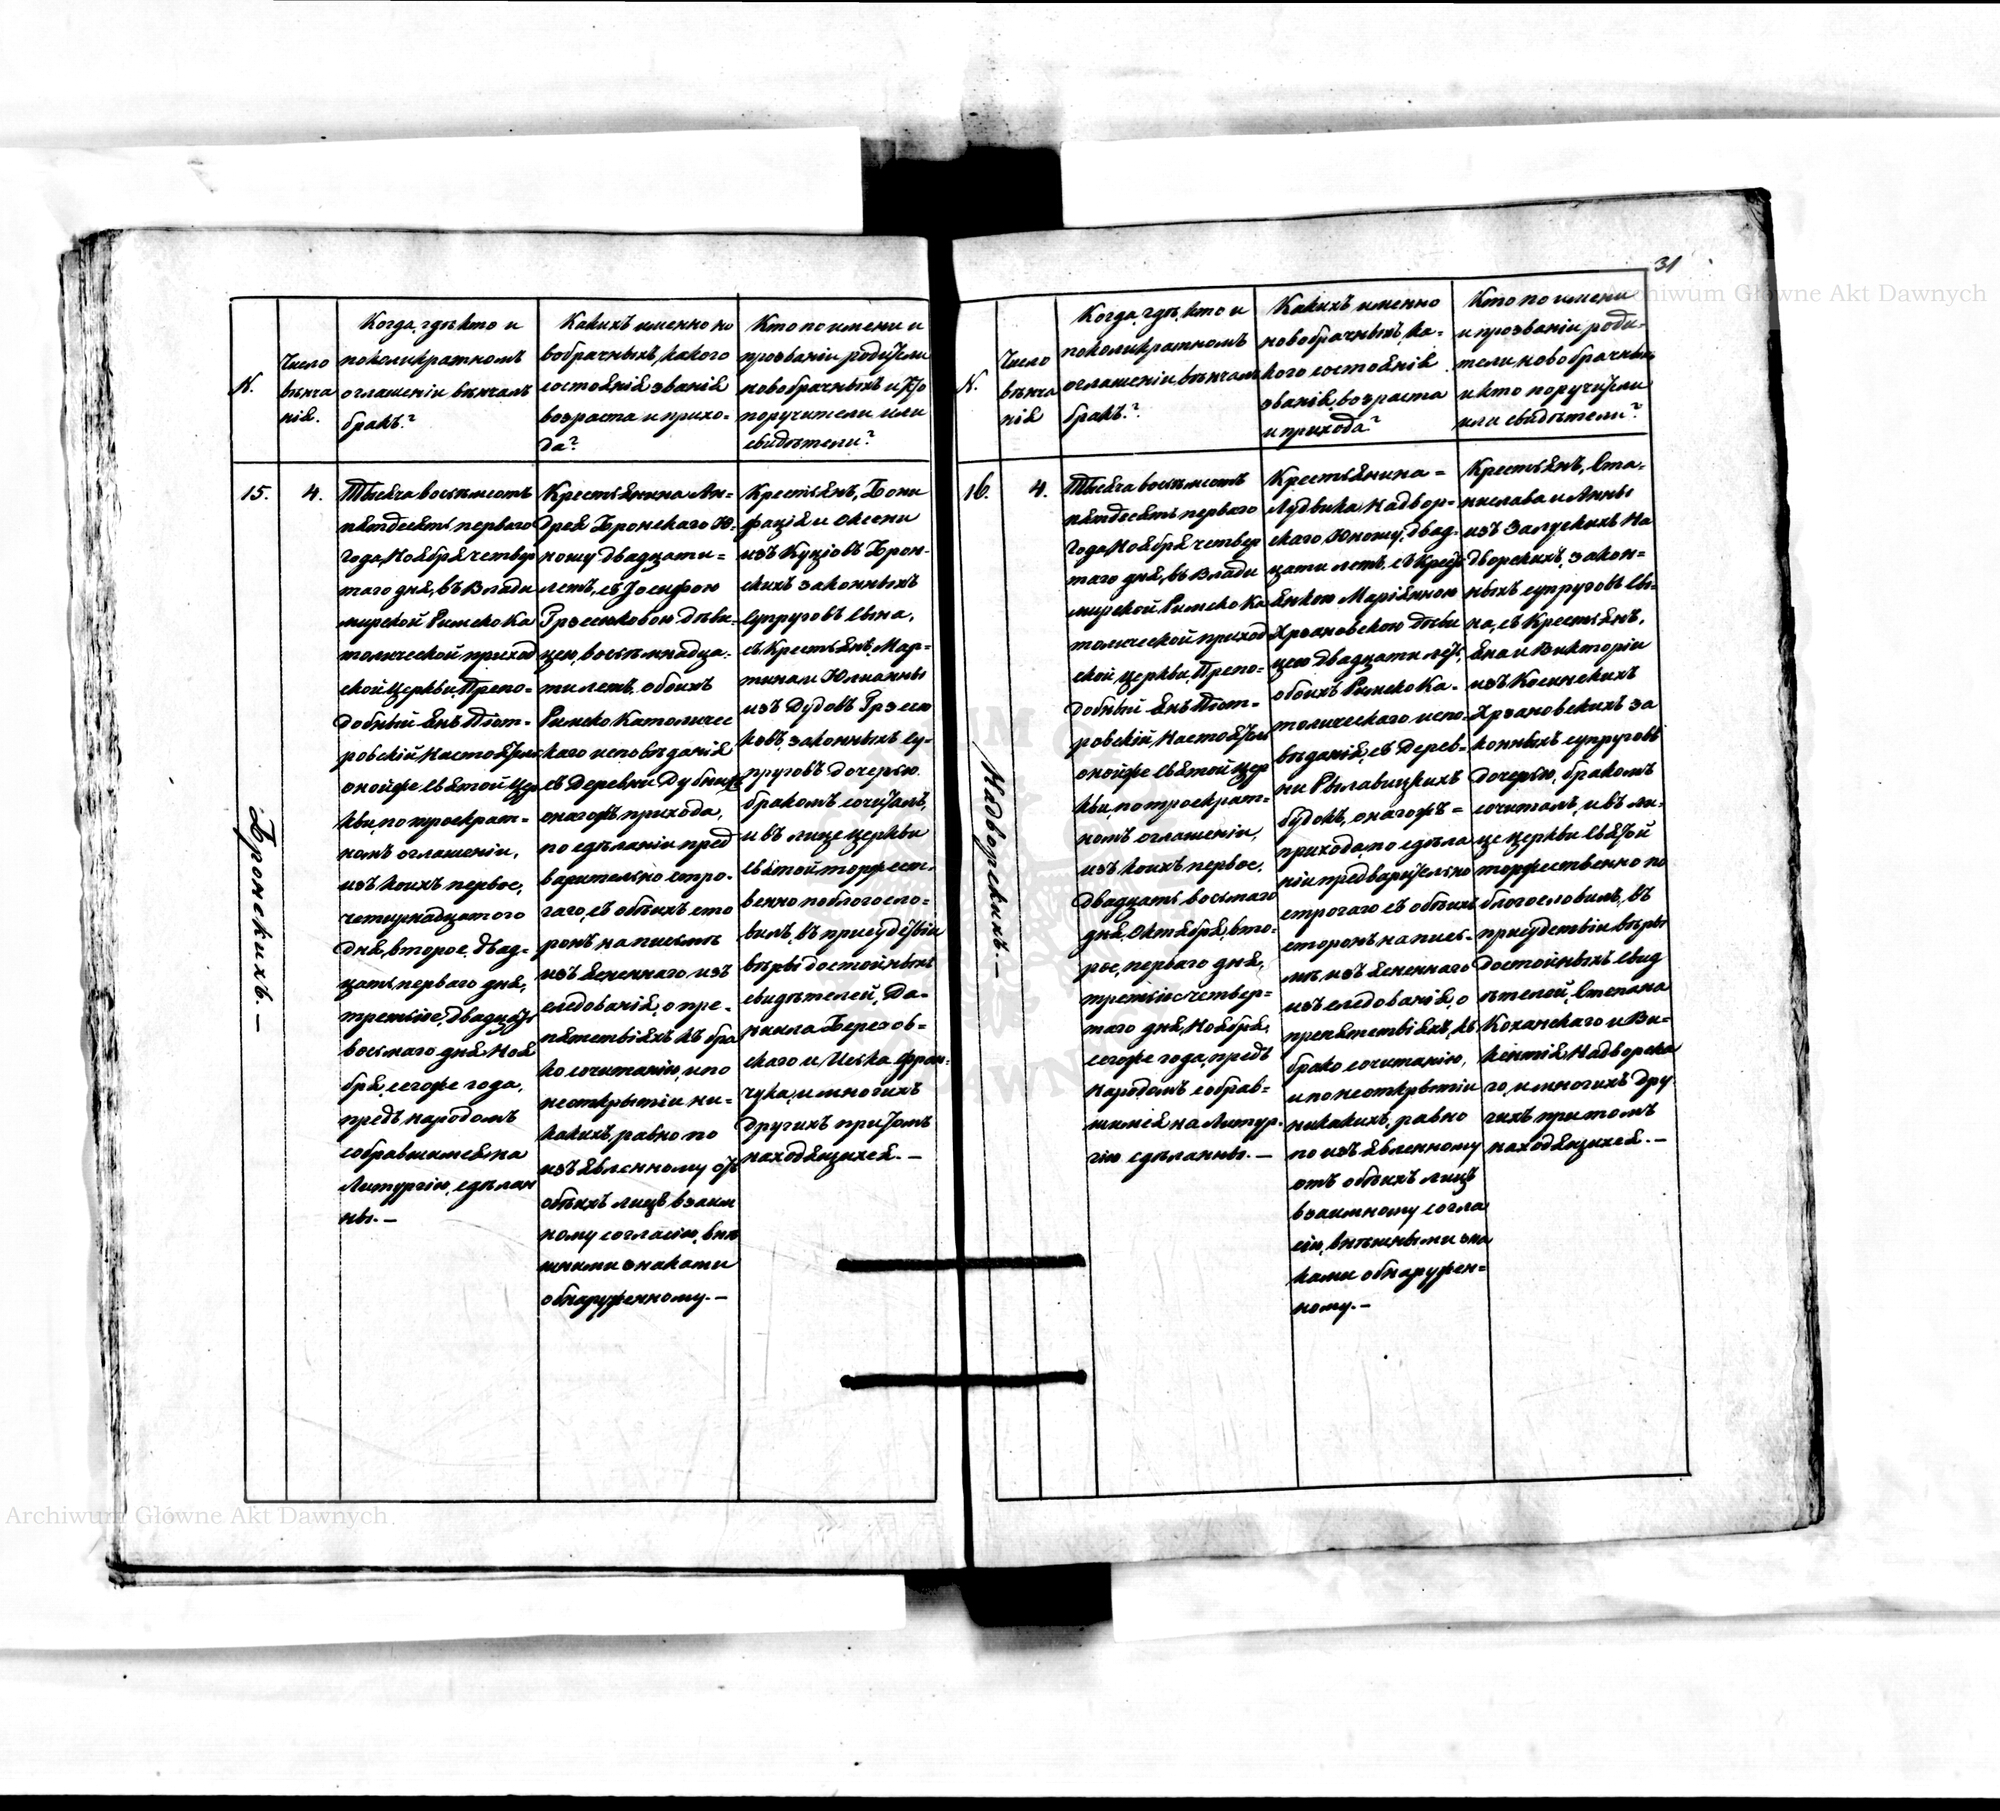 Archiwum Główne Akt Dawnych
31
N.
Число
вѣнча
нія.
Когда, гдѣ, кто и
поколикратномъ
оглашеніи вѣнчалъ
бракъ?
Какихъ именно но
вобрачныхъ, какого
состоянія званія
возраста и прихо-
да?
Кто по имени и
прозваніи родители
новобрачныхъ и кто
поручители или
свидѣтели?
15.
4.
Бронскихъ. —
Тысяча восемьсотъ
пятдесятъ перваго
года, Ноября четвер
таго дня, въ Влади
мирской Римско Ка
толической приход
ской церкви, Препо-
добный Янъ Піот-
ровскій, Настоятель
онойже святой цер
кви, по троекрат-
номъ оглашеніи,
изъ коихъ первое,
четырнадцатого
дня, второе, двад-
цать перваго дня,
третьіе, двадцать
восьмаго дня Ноя
бря, сегоже года,
предъ народомъ
собравшимся на
Литургію, сдѣлан
ны. —
Крестьянина Ан-
дрея Бронскаго Ю-
ношу двадцати =
летъ, съ Іосифою
Грэсюковою Дѣви-
цею, восьмнадца-
ти летъ, обоихъ
Римско Католичес
каго исповѣданія
съ Деревни Дубникъ
онагожъ прихода,
по сдѣланіи пред
варительно стро-
гаго, съ обоихъ сто
ронъ на письмѣ
изъясненнаго изъ
следованія, о пре-
пятствіяхъ къ бра
ко сочитанію, и по
неоткрытіи ни-
какихъ, равно по
изъявленному отъ
обоихъ лицъ взаим
ному согласію, внѣ
шними знаками
обнаруженному. —
Крестьянъ, Бони
фація и Оксени
изъ Куціовъ Брон-
скихъ законныхъ
супруговъ сына,
съ Крестьянъ, Мар-
тина и Юліанны
изъ Дудовъ Грэсю
ковъ, законныхъ су-
пруговъ дочерью
бракомъ сочиталъ,
и въ лице церкви
святой, торжест-
венно поблагосло-
вилъ, въ присудствіи
вѣры достойныхъ
свидѣтелей, Да-
ніила Березов-
скаго и Иська Фран-
чука, и многихъ
другихъ притомъ
находящихся. —
N.
Число
вѣнча
нія
Когда, гдѣ, кто и
поколикратномъ
оглашеніи вѣнчалъ
бракъ?
Какихъ именно
новобрачныхъ, ка-
кого состоянія
званія, возраста
и прихода?
Кто по имени
и прозваніи роди-
тели новобрачныхъ
и кто поручители
или свидѣтели?
16.
4.
Надворскихъ. —
Тысяча восемьсотъ
пятдесятъ перваго
года, Ноября четвер
таго дня, въ Влади
мирской Римско Ка
толической приход
ской церкви, Препо-
добный Янъ Піот-
ровскій, Настоятель
онойже святой цер
кви, по троекрат-
номъ оглашеніи,
изъ коихъ первое,
двадцать восьмаго
дня, Октября, вто-
рое, перваго дня,
третьіе четвер-
таго дня, Ноября,
сегоже года, предъ
народомъ собрав-
шимся на Литур-
гію сдѣланны. —
Крестьянина =
Лудвика Надвор-
скаго, Юношу, двад-
цати летъ, съ Кресть
янкою Маріянною
Хрзановскою Дѣви
цею двадцати летъ,
обоихъ Римско Ка-
толическаго испо-
вѣданія, съ Дерев-
ни Рылавицкихъ
будокъ, онагожъ =
прихода, по сдѣла
ніи предварительно
строгаго съ обоихъ
сторонъ на пись-
мѣ, изъясненнаго
изъследованія, о
препятствіяхъ, къ
брако сочитанію,
и по неоткрытіи
никакихъ, равно
по изъявленному
отъ обоихъ лицъ
взаимному согла
сію, внѣшными зна
ками обнаружен-
ному. —
Крестьянъ, Ста-
нислава и Анны
изъ Залускихъ На
дворскихъ, закон-
ныхъ супруговъ сы-
на, съ Крестьянъ,
Яна и Викторіи
изъ Косинскихъ
Хрзановскихъ за
конныхъ супруговъ
дочерью, бракомъ
сочиталъ, и въ ли-
це церкви святой
торжественно по
благословилъ, въ
присудствіи вѣры
достойныхъ свид
ѣтелей, Степана
Коханскаго и Ви-
кентія Надворска
го, и многихъ дру
гихъ притомъ
находящихся. —
Archiwum Główne Akt Dawnych